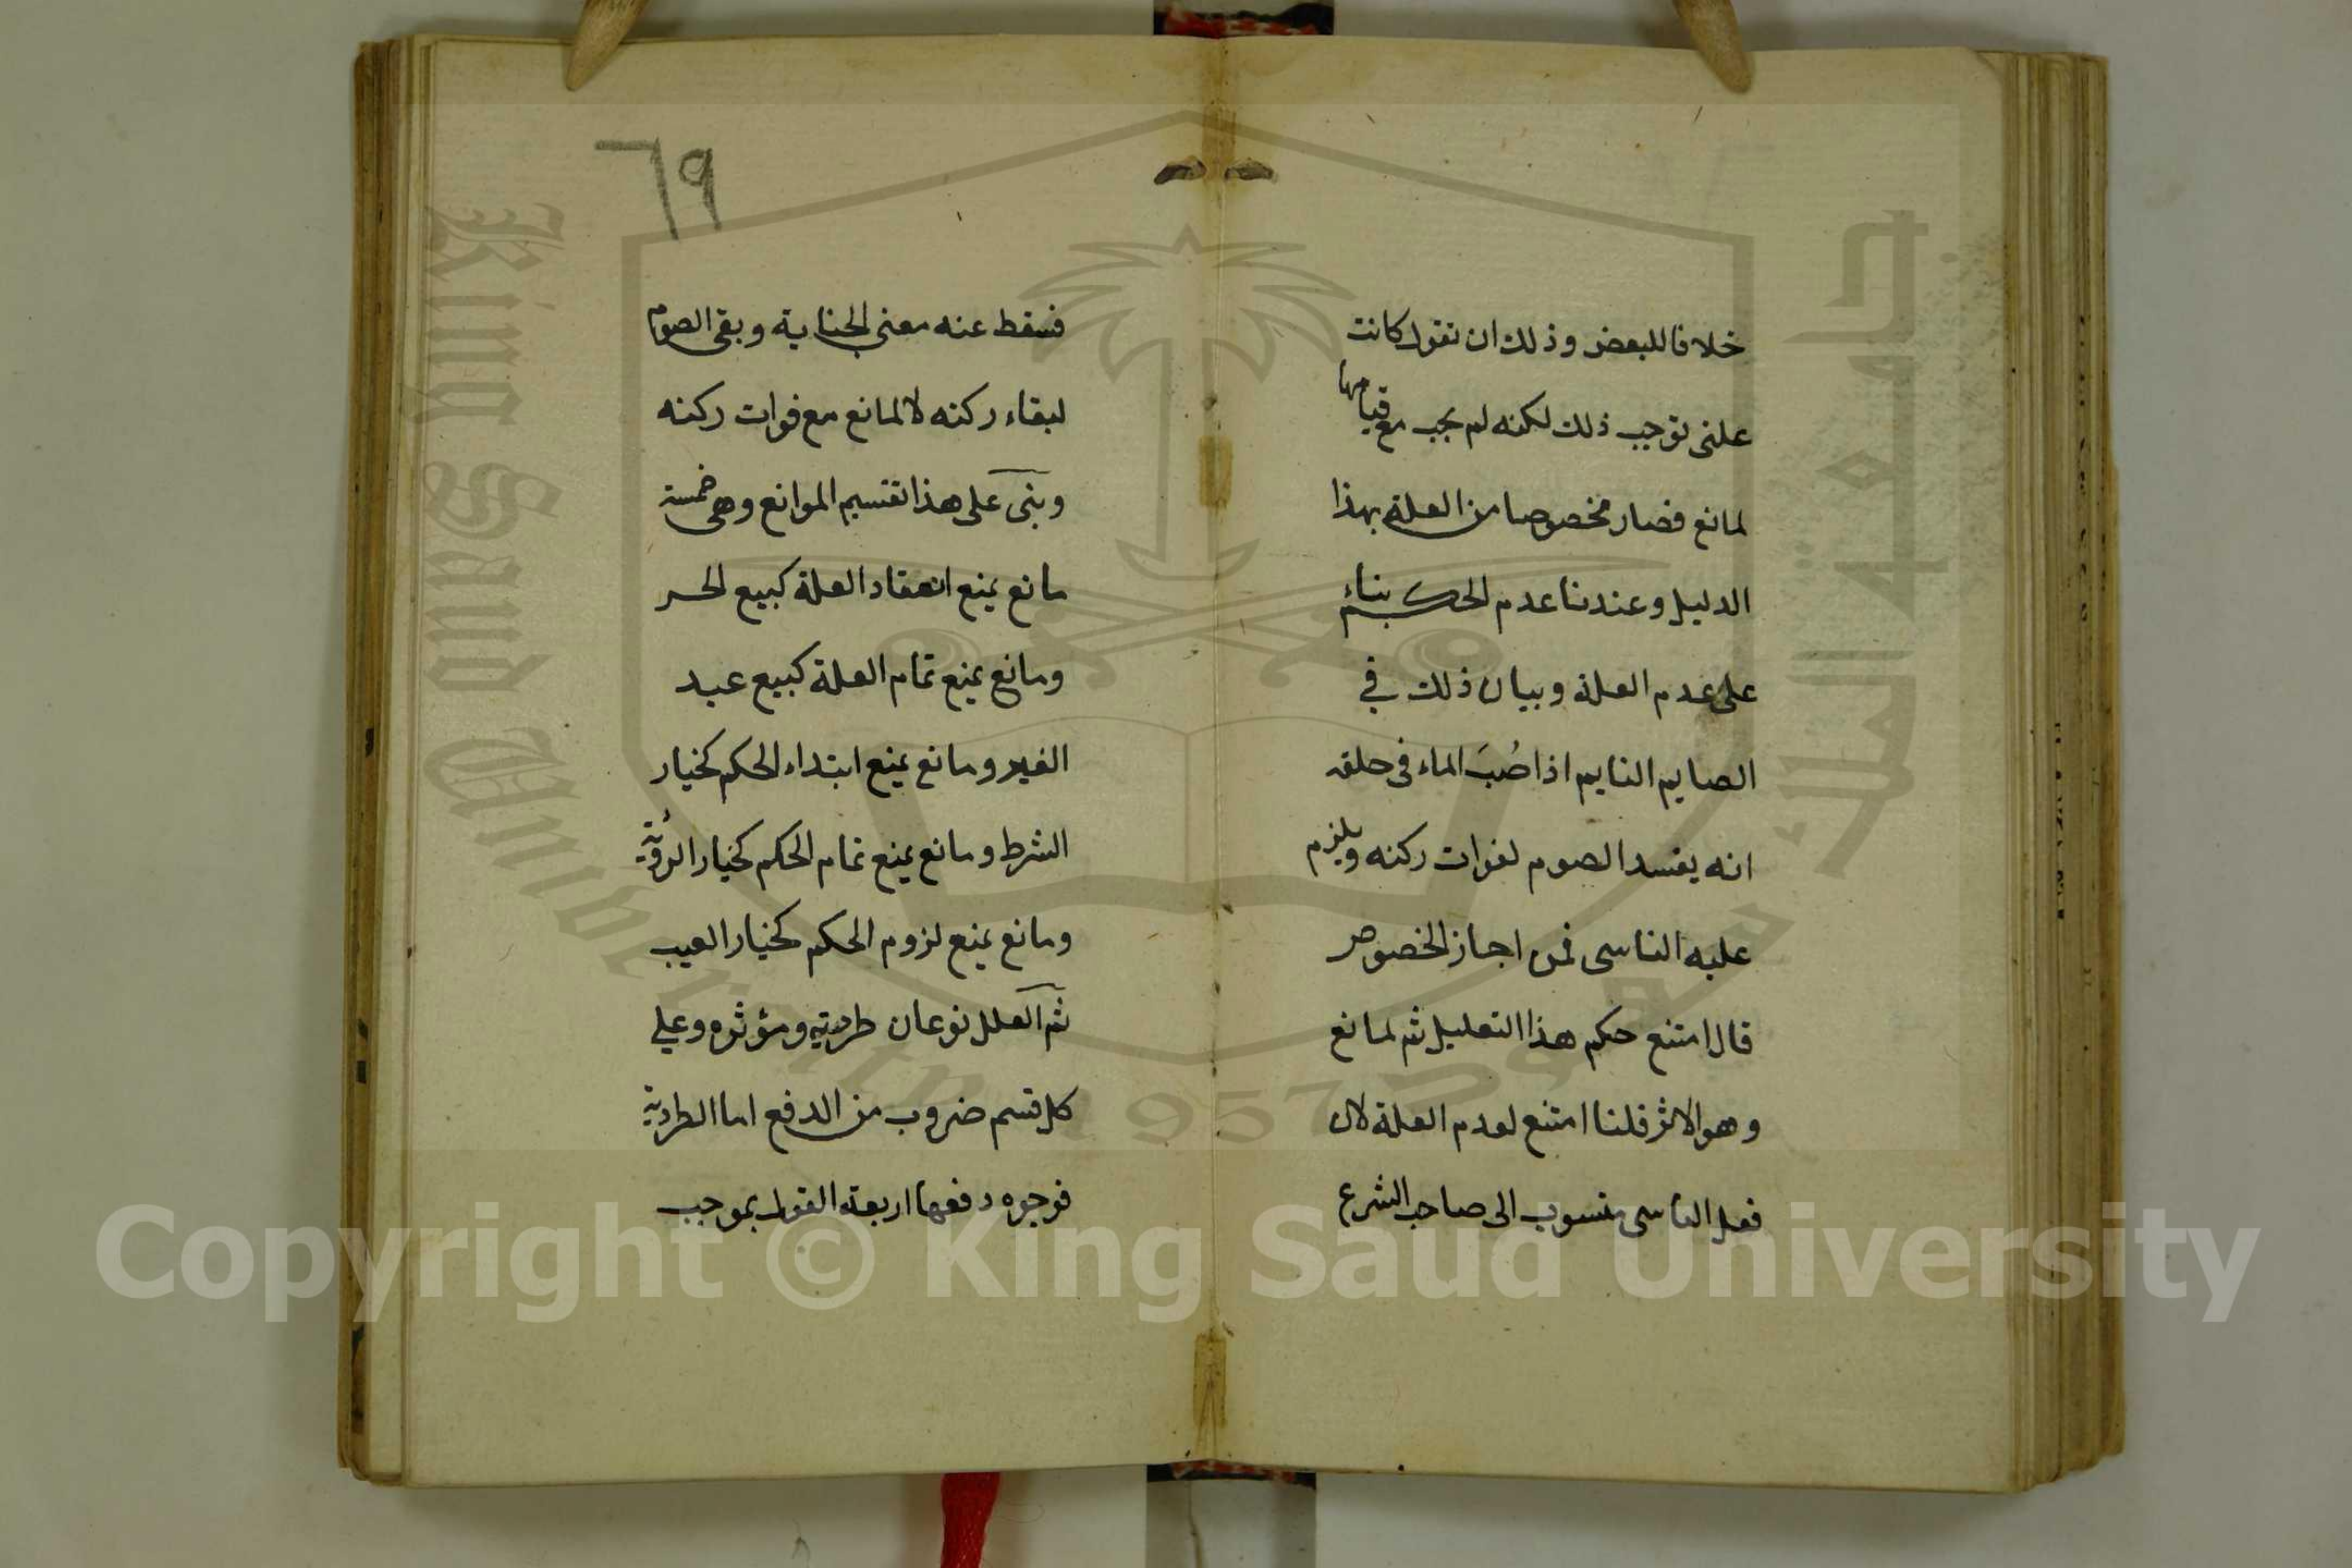 خلافا للبعض وذلك ان نقول كانت
علتى توجب ذلك لكنه لم يجب مع قيامها
لمانع فصار مخصوصا من العلة بهذا
الدليل وعندنا عدم الحكم بناء
على عدم العلة وبيان ذلك في
الصايم النايم اذا صُبَ الماء فى حلقه
انه يفسد الصوم لفوات ركنه ويلزم
عليه الناسى فمن اجاز الخصوص
قال امتنع حكم هذا التعليل ثم لمانع
وهو الاثر قلنا امتنع لعدم العلة لان
فعل الناسى منسوب الى صاحب الشرع
٦٩
فسقط عنه معنى الجناية وبقى الصوم
لبقاء ركنه لا لمانع مع فوات ركنه
وبنى على هذا تقسيم الموانع وهى خمسة
مانع يمنع انعقاد العلة كبيع الحر
ومانع يمنع تمام العلة كبيع عبد
الغير ومانع يمنع ابتداء الحكم كخيار
الشرط ومانع يمنع تمام الحكم كخيار الرؤية
ومانع يمنع لزوم الحكم كخيار العيب
ثم العلل نوعان طردية ومؤثره وعلي
كل قسم ضروب من الدفع اما الطردية
فوجوه دفعها اربعة القول بموجب
جامعة الملك سعود
King Saud University
1957
Copyright © King Saud University